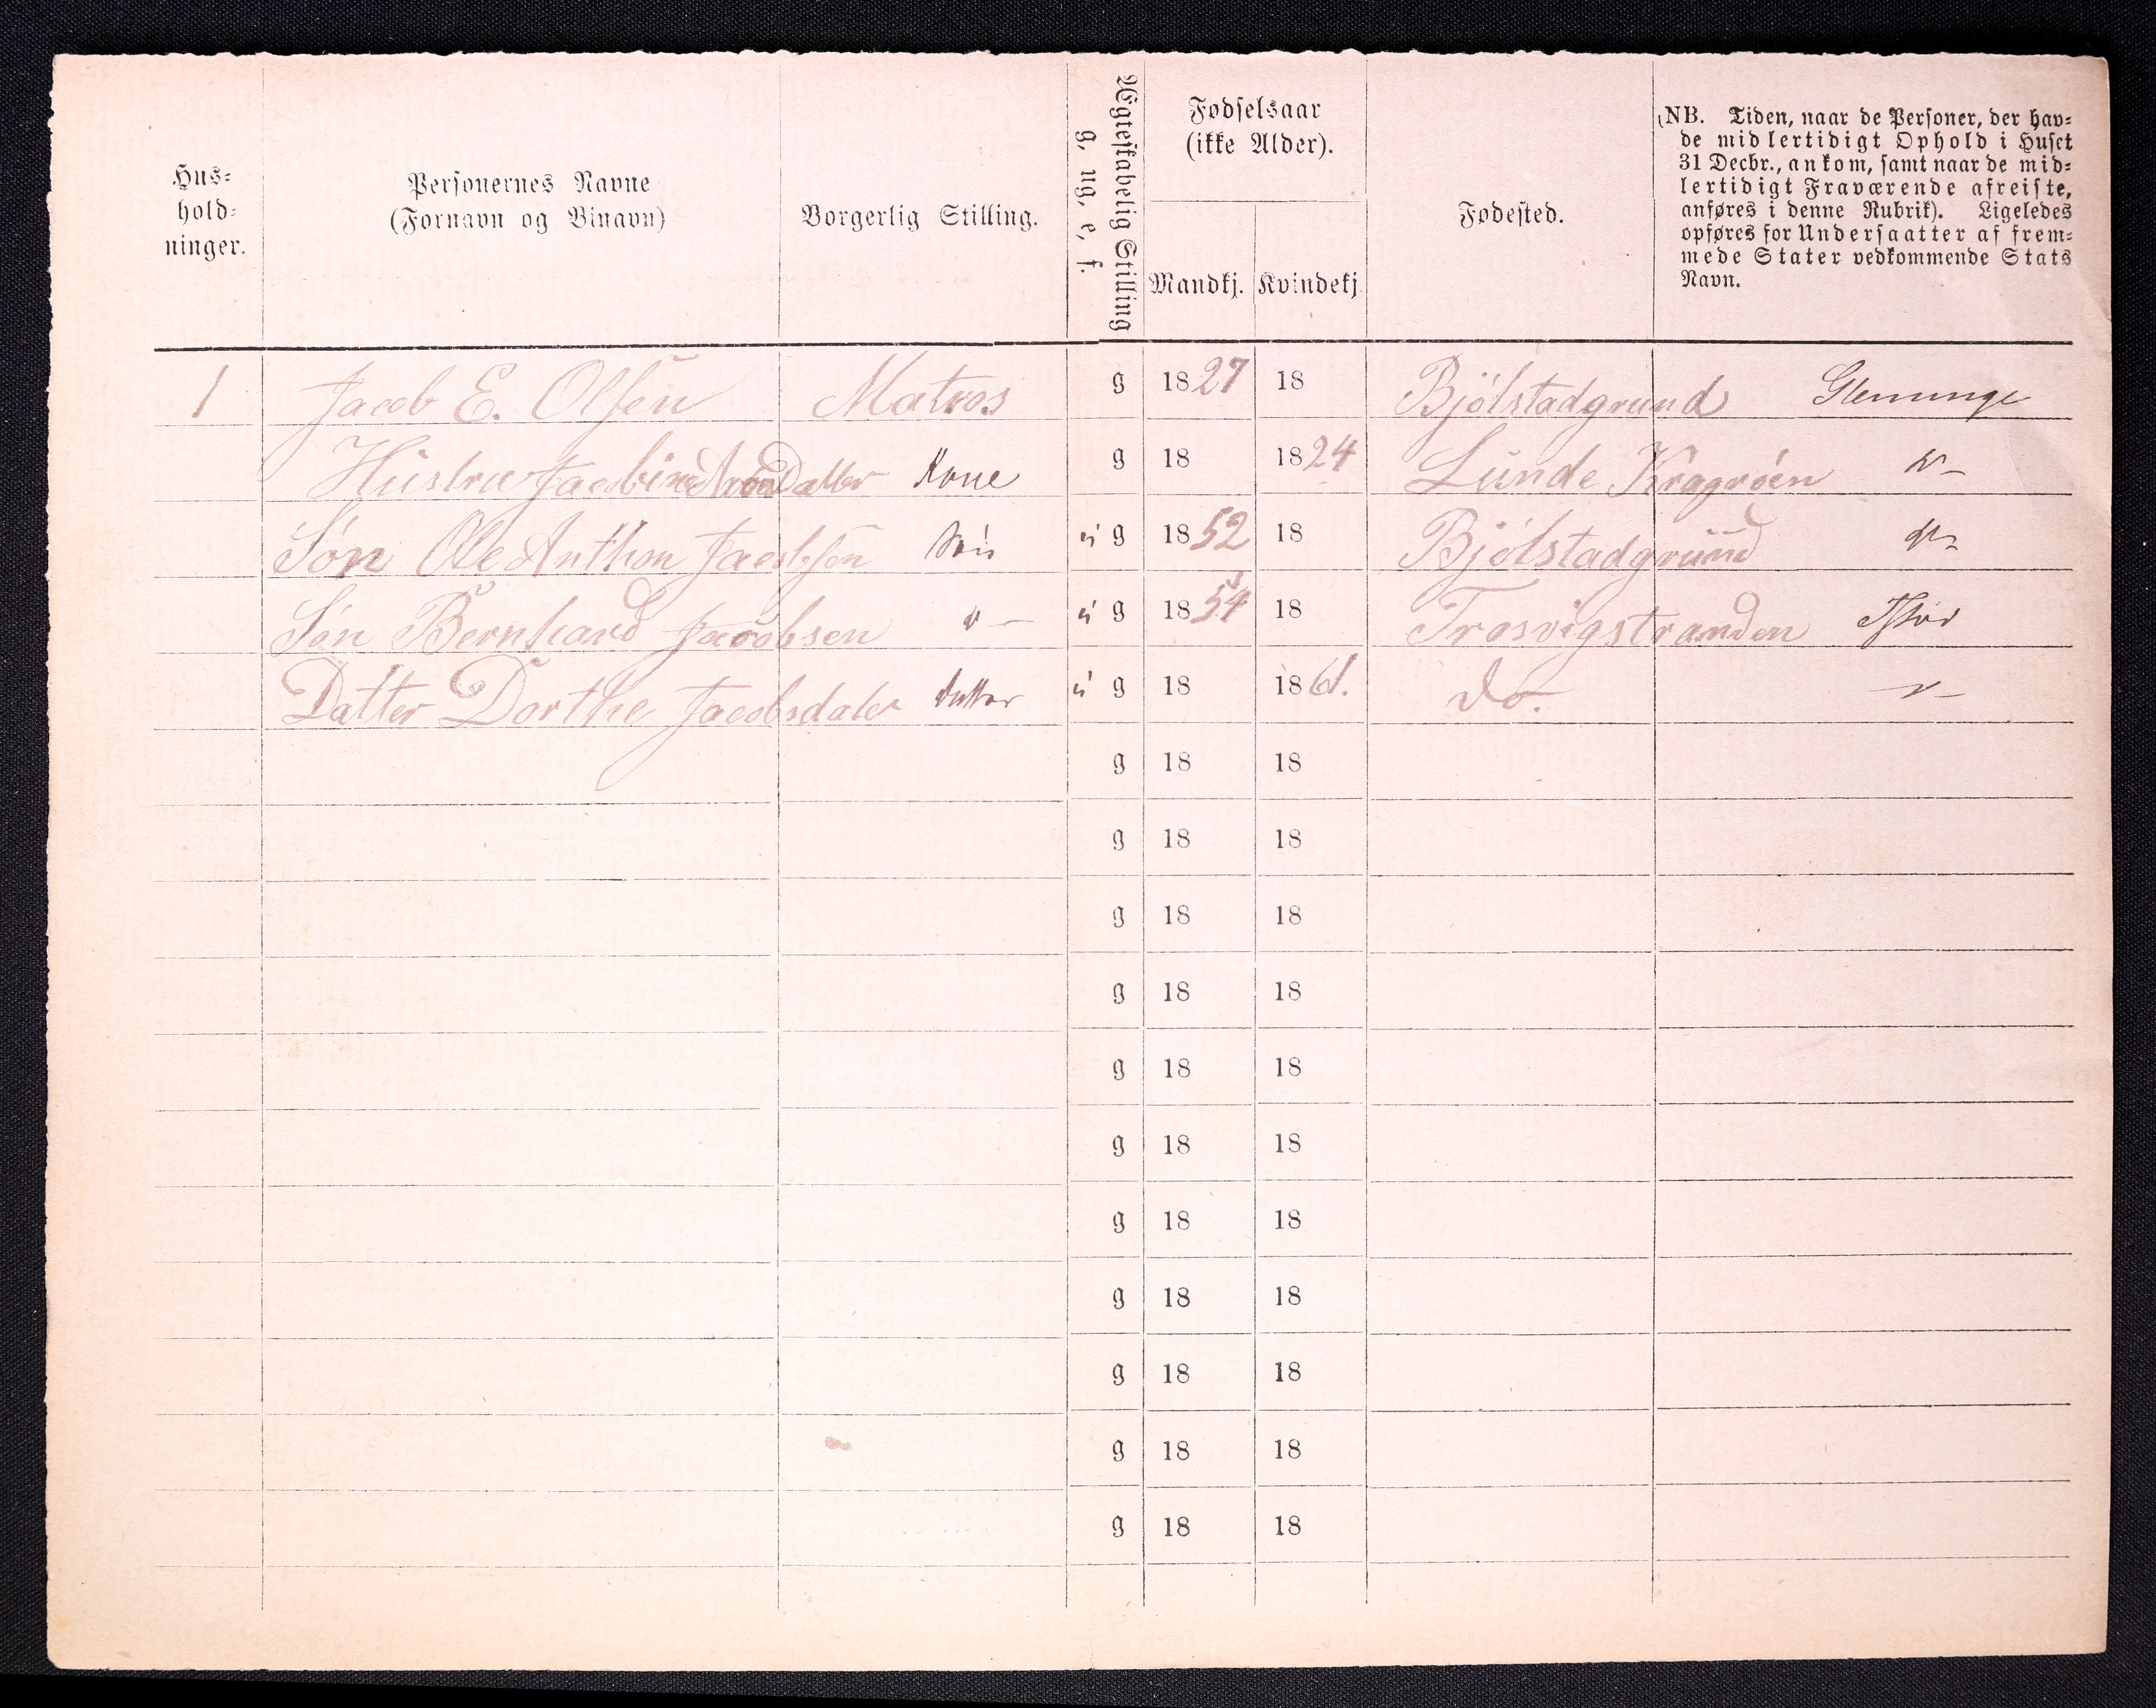 Hus=
hold=
ninger.
Personernes Navne
(Fornavn og Binavn)
Borgerlig Stilling.
Ægteskabelig Stilling
g, ug, e, f.
Fødselsaar
(ikke Alder).
Mandkj. Kvindekj.
Fødested.
(NB. Tiden, naar de Personer, der hav=
de midlertidigt Ophold i Huset
31 Decbr., ankom, samt naar de mid=
lertidigt Fraværende afreiste,
anføres i denne Rubrik). Ligeledes
opføres for Undersaatter af frem=
mede Stater vedkommende Stats
Navn.
1 Jacob E. Olsen Matros g 1827 18 Bjølstadgrund Glemminge
Hustru Jacobine Datter Kone g 18 1824 Lunde Kragrøen
Søn Ole Anthon Jacobsen Søn u g 1852 18 Bjølstadgrund
Søn Bernhard Jacobsen u g 1854 18 Trosvigstranden
Datter Dorthe Jacobsdater datter u g 18 1861. Do.
g 18 18
g 18 18
g 18 18
g 18 18
g 18 18
g 18 18
g 18 18
g 18 18
g 18 18
g 18 18
g 18 18